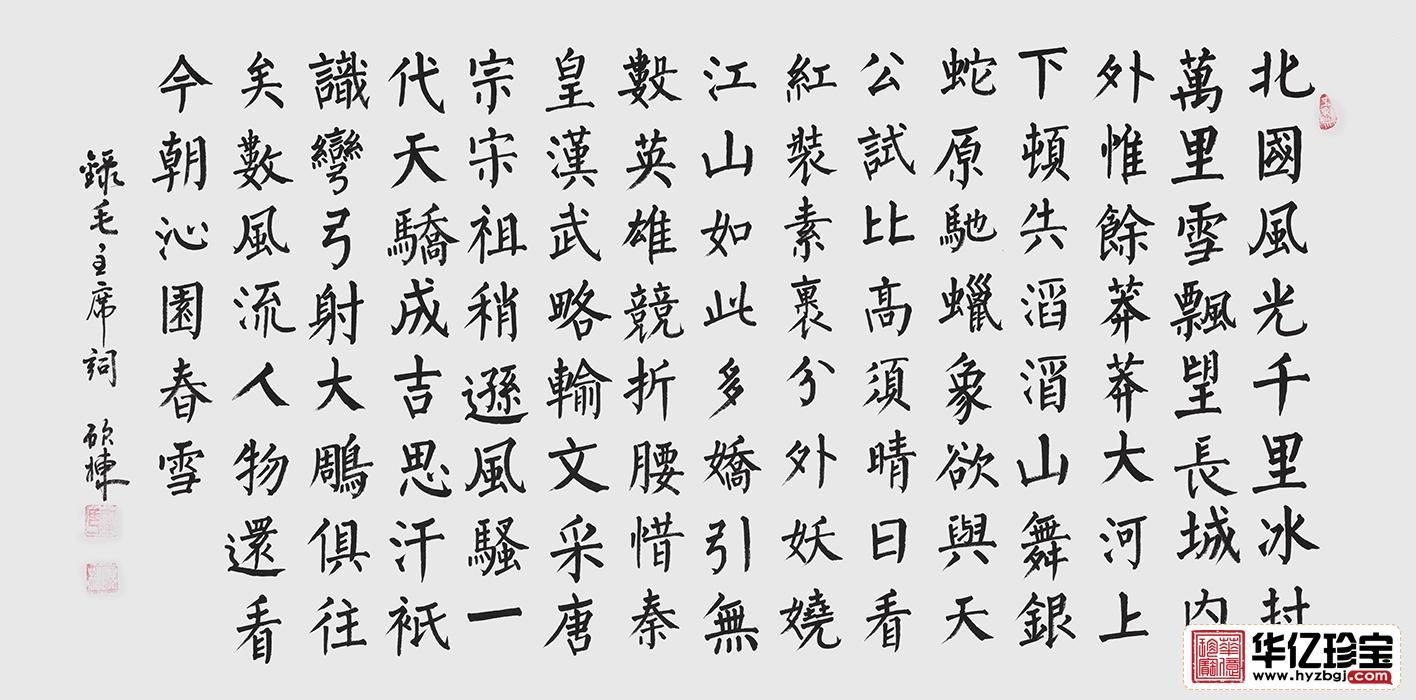 北國風光千里冰封
萬里雪飄望長城内
外惟餘莽莽大河上
下頓失滔滔山舞銀
蛇原馳蠟象欲與天
公試比高須晴日看
紅裝素裹分外妖嬈
江山如此多嬌引無
數英雄競折腰惜秦
皇漢武略輸文采唐
宗宋祖稍遜風騷一
代天驕成吉思汗衹
識彎弓射大鵰俱往
矣數風流人物還看
今朝沁園春雪
錄毛主席詞
华亿珍宝
www.hyzbgj.com